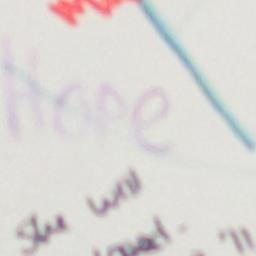 Hope
She will
'll